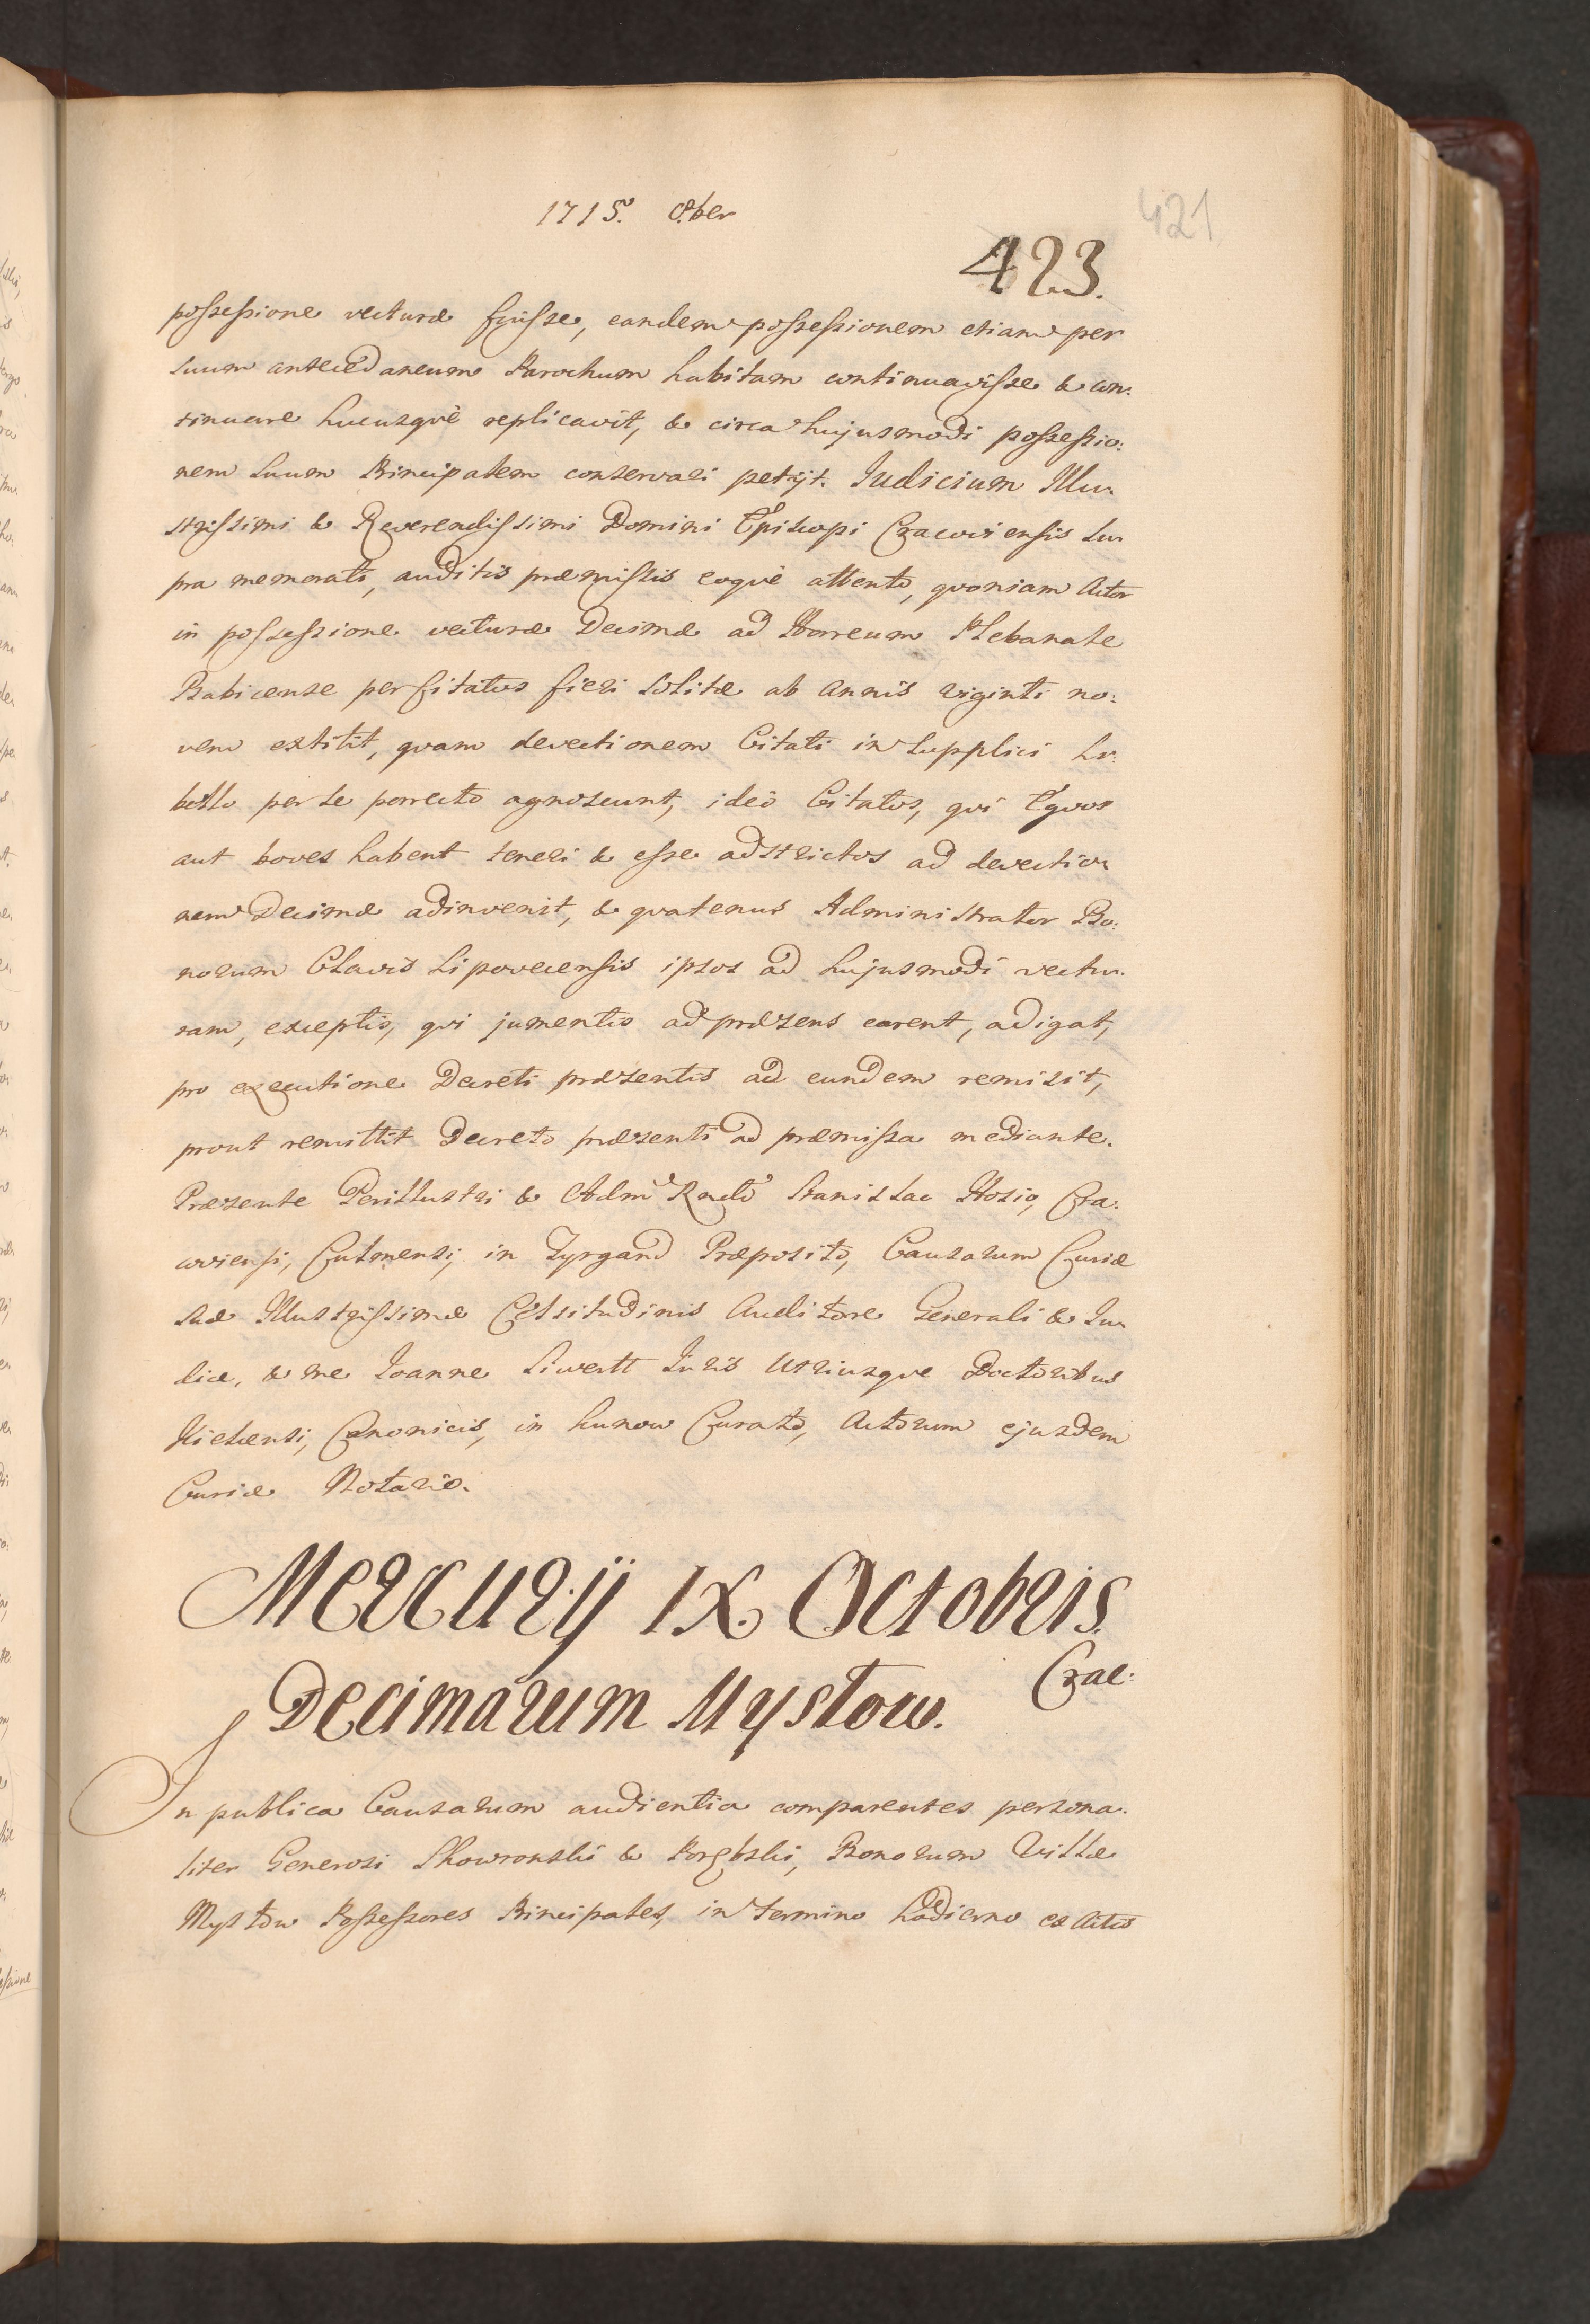 1715. 8ber
421
423.
possessione vecturæ fuisse, eandem possessionem etiam per
suum antecedaneum Parochum habitam continuavisse & con:
tinuare hucusque replicavit, & circa hujusmodi possessio:
nem suum Principalem conservari petijt. Iudicium Illu
strissimi & Reverendissimi Domini Episcopi Cracoviensis su
pra memorati, auditis præmissis eoque attento, quoniam Actor
in possessione vecturæ Decimæ ad Horreum Plebanale
Babicense per Citatos fieri solitæ ab annis viginti no:
vem extitit, quam devectionem Citati in supplici li:
bello per se porrecto agnoscunt, ideo Citatos, qui Equos
aut boves habent teneri & esse adstrictos ad devectio
nem Decimæ adinvenit, & quatenus Administrator Bo:
norum Clavis Lipovecensis ipsos ad hujusmodi vectu.
ram, exceptis, qui jumentis ad præsens carent, adigat,
pro executione Decreti præsentis ad eundem remisit,
prout remittit Decreto præsenti ad præmissa mediante.
Præsente Perillustri & Adm Rndo Stanislao Hosio, Cra:
coviensi, Culmensi, in Zyrgand Præposito, Causarum Curiæ
suæ Illustrissimæ Celsitudinis Auditore Generali & Iu
dice, & me Ioanne Siwertt Iuris Utriusque Doctoribus
Kielcensi, Canonicis, in Kunow Curato, Actorum ejusdem
Curiæ Notario.
Mercurij IX. Octobris.
Crac:
Decimarum Mystow.
In publica Causarum audientia comparentes persona:
liter Generosi Skowronski & Porębski, Bonorum Villæ
Mystow Possessores Principales, in termino hodierno ex Actis